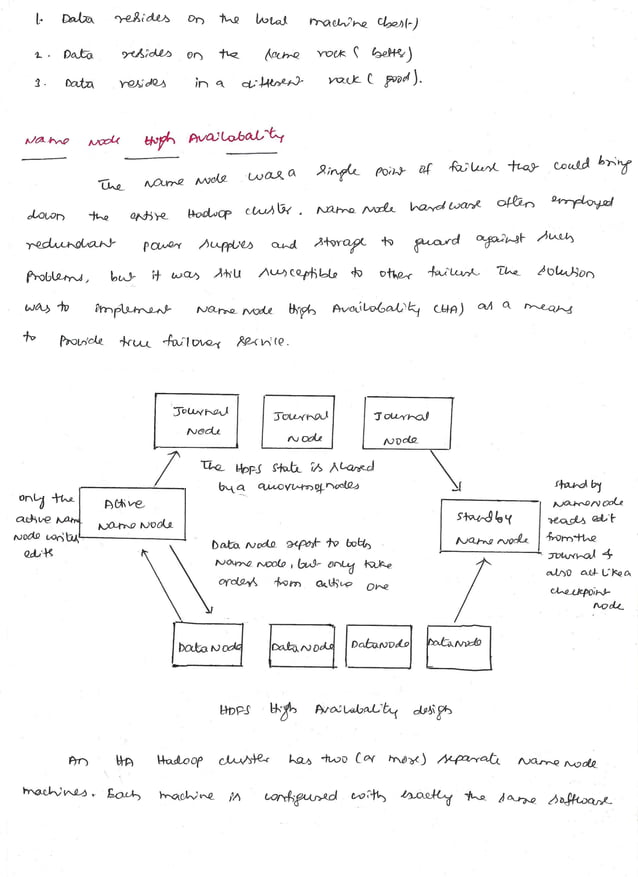 1. Data resides on the local machine (best)
2. Data resides on the same rack (better)
3. Data resides in a different rack (good).
Name Node High Availabality
The Name Node was a single point of failure that could bring
down the entire Hadoop cluster. Name Node hardware often employed
redundant power supplies and storage to guard against such
problems, but it was still susceptible to other failure. The solution
was to implement Name Node High Availabality (HA) as a means
to provide true failover service.
Journal Node
Journal Node
Journal Node
The HDFS State is shared
by a quorum of nodes
only the
active Name
Node writes
edits
Active
Name Node
Standby
Name Node
Stand by
NameNode
reads edit
from the
Journal &
also act like a
checkpoint
node
Data Node report to both
Name Node, but only take
orders from active one
Data Node
Data Node
Data Node
Data Node
HDFS High Availabality design
An HA Hadoop cluster has two (or more) separate Name node
machines. Each machine is configured with exactly the same software